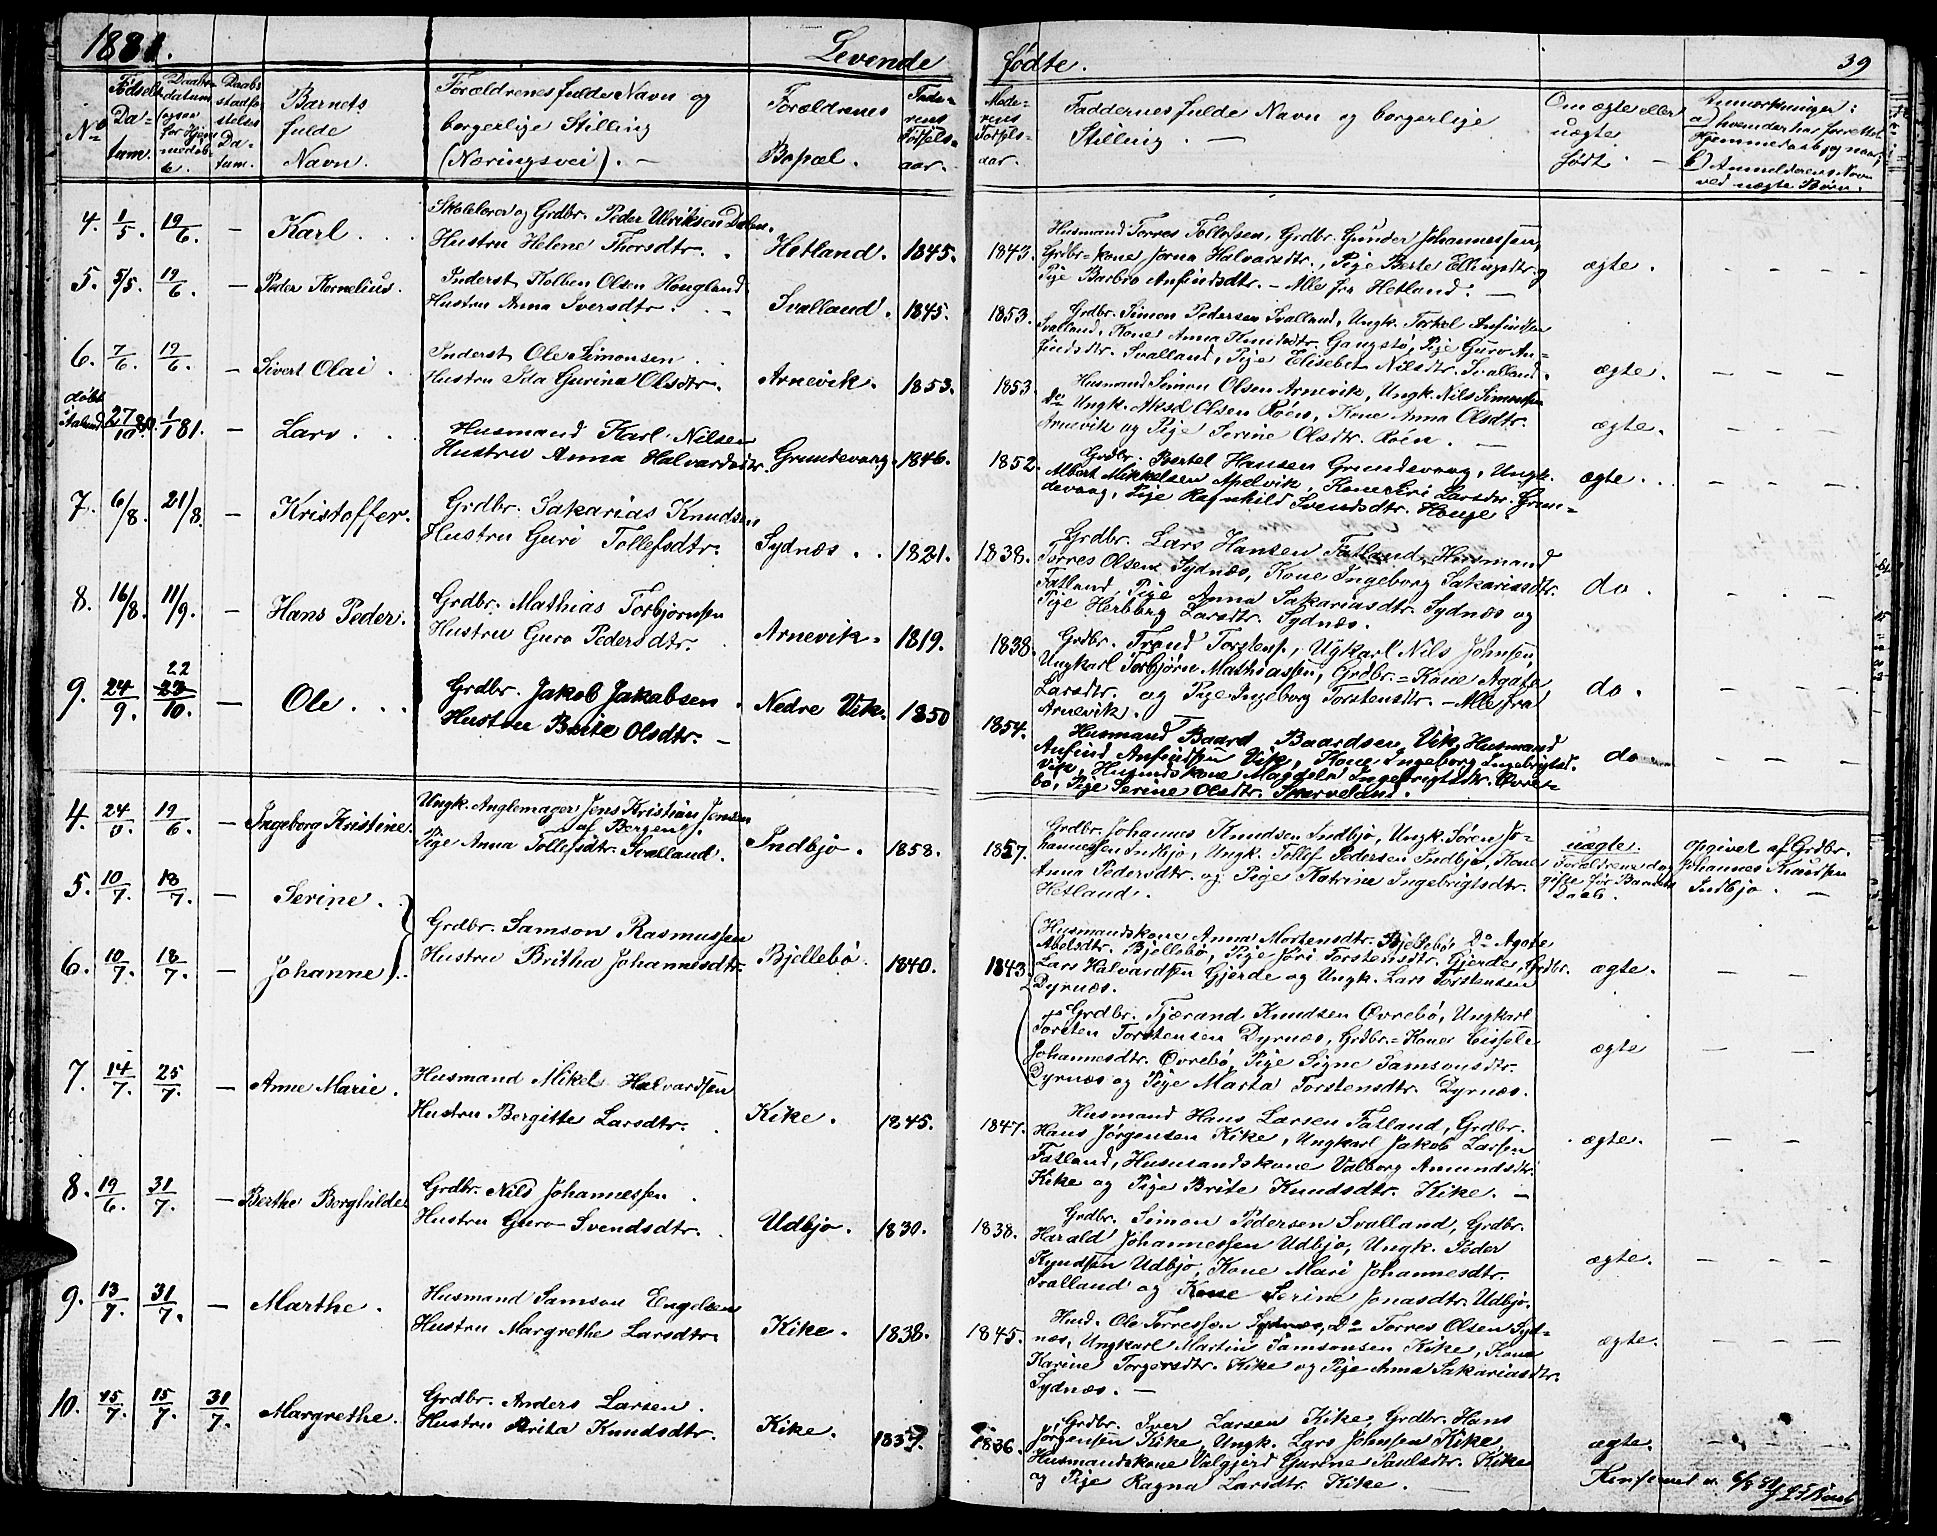 1881.
Levende
fødte.
39
No
Fødsels-Datum.
Daabs-datum (ogsaa for Hjemmedøbte.
Daabs stadfæstelses Datum.
Barnets fulde Navn.
Forældrenes fulde Navn og borgerlige Stilling (Næringsvei). —
Forældrenes Bopæl.
Faderens Fødselsaar.
Moderens Fødselsaar.
Faddernes fulde Navn og borgerlige Stilling. —
Om ægte eller uægte født. —
Anmærkninger:
a) hvem der har forrettet Hjemmedaab og naar;
b) Anmelderens Navn ved uægte Børn.
4. 1/5 19/6. — Karl . .
Skolelærer og Grdbr. Peder Ulriksen Dalen.
Hustru Helene Thorsdtr. . Hetland. 1845.
1843. Husmand Torres Tollofsen, Grdbr. Gunder Johannessen,
Grdbr=kone Jorna Halvarsdtr., Pige Berte Ellingsdtr. og
Pige Barbro Anfindsdtr. — Alle fra Hetland. —
ægte. — — —
5. 5/5. 19/6. — Peder Kornelius.
Inderst Kolben Olsen Hougland
Hustru Anna Iversdtr. . — Svalland. 1845.
1853. Grdbr. Simon Pedersen Svalland, Ungk. Torkel Anfindsen
Svalland, Kone Anna Knudsdtr. Gangstø, Pige Guro An=
findsdtr. Svalland, Pige Elisebet Nilsdtr. Svalland.
ægte. — — —
6. 7/6. 19/6. — Sivert Olai .
Inderst Ole Simonsen . .
Hustru Ida Gurina Olsdtr. Arnevik. 1853.
1853. Husmand Simon Olsen Arnevik, Ungk. Nils Simonsen
Do Ungk. Aksel Olsen Røen, Kone Anna Olsdtr.
Arnevik og Pige Serine Olsdtr. Røen. —
ægte. — — —
døbt
27/10 80. 1/1 81. — Lars . .
Husmand Karl Nilsen
Hustru Anna Halvardsdtr. Grundevaag. 1846.
1852. Grdbr. Bertel Hansen Grundevaag, Ungk.
Albert Mikkelsen Apelvik, Kone Siri Larsdtr. Grun=
devaag, Pige Rafnhild Svendsdtr. Houge.
ægte . . . — — —
7. 6/8. 21/8. — Kristoffer.
Grdbr. Sakarias Knudsen
Hustru Guri Tollefsdtr. Sydnæs . . 1821.
1838. Grdbr. Lars Hansen Fatland, Husmand
Torres Olsen Sydnæs, Kone Ingeborg Sakariasdtr.
Fatland, Pige Anna Sakariasdtr. Sydnæs og
Pige Herborg Larsdtr. Sydnæs.
do . — — —
8. 16/8. 11/9. — Hans Peder.
Grdbr. Mathias Torbjørnsen
Hustru Guro Pedersdtr. Arnevik. 1819.
1838. Grdbr. Trond Torstens., Ugkarl Nils Johnsen,
Ungkarl Torbjørn Mathiassen, Grdbr.=Kone Agate
Larsdtr. og Pige Ingeborg Torstensdtr. — Alle fra
Arnevik.
do . — — —
9. 24/9. 22 23/10. — Ole . . .
Grdbr. Jakob Jakobsen .
Hustru Brite Olsdtr. — Nedre Vik. 1850
1854. Husmand Baard Baardsen Vik, Husmand
Anfind Anfindsen Vik, Kone Ingeborg Ingebrigtsd.
Vik, Husmndskone Magdela Ingebrigtsdtr. Øvre=
bø, Pige Serine Olsdtr. Skarveland.
do — — —
4. 24/ 19/6 — Ingeborg Kristine.
Ungk. Anglemager Jens Kristian Jensen
af Bergen og
Pige Anna Tollefsdtr. Svalland. Indbjo. 1858.
1857. Grdbr. Johannes Knudsen Indbjo, Ungk. Søren Jo=
hannessen Indbjo, Ungk. Tollef Pedersen Indbjo, Kone
Anna Pedersdtr. og Pige Katrine Ingebrigtsdtr.
Hetland.
uægte.
Forældrene dog
gifte før Barnets
Daab.
Opgivet af Grdbr.
Johannes Knudsen
Indbjo. —
5. 10/7. 18/7. — Serine .
6. 10/7. 18/7. — Johanne
Grdbr. Samson Rasmussen
Hustru Britha Johannesdtr. Bjellebø. 1840.
1843. Husmandskone Anna Mortensdtr. Bjellebø, Do Agate
Abelsdtr. Bjellebø, Pige Siri Torstensdtr. Gjerde, Grdbr.
Lars Halvardsen Gjerde og Ungk. Lars Torstensen
Dyrnæs.
ægte. — —
Grdbr. Tjærand Knudsen Øvrebø, Ungkarl
Torsten Torstensen Dyrnæs, Grdbr.=Kone Eissele
Johannesdtr. Øvrebø, Pige Signe Samsonsdtr.
Dyrnæs og Pige Marta Torstensdtr. Dyrnæs.
ægte — —
7. 14/7. 25/7. — Anne Marie .
Husmand Mikel Halvardsen
Hustru Bergitte Larsdtr. . Kike . 1845.
1847. Husmand Hans Larsen Fatland, Grdbr.
Hans Jørgensen Kike, Ungkarl Jakob Larsen
Fatland, Husmandskone Valborg Amundsdtr.
Kike og Pige Brite Knudsdtr. Kike. —
ægte. — —
8. 19/6. 31/7. — Berthe Borghilde.
Grdbr. Nils Johannessen .
Hustru Guro Svendsdtr. . Udbjo. 1830.
1838. Grdbr. Simon Pedersen Svalland, Grdbr.
Harald Johannessen Udbjo, Ungk. Peder
Knudsen Udbjo, Kone Mari Johannesdtr.
Svalland og Kone Serine Jonasdtr. Udbjo.
ægte. — — —
9. 13/7. 31/7. — Marthe .
Husmand Samson Engelsen
Hustru Margrethe Larsdtr. Kike. 1838.
1845. Husd. Ole Torressen Sydnæs, Do Torres Olsen Syd=
nes, Ungkarl Martin Samsonsen Kike, Kone
Karine Torgersdtr. Kike og Pige Anna Sakariasdtr.
Sydnæs. —
ægte. — — —
10. 15/7. 15/7. 31/7. Margrethe.
Grdbr. Anders Larsen .
Hustru Brita Knudsdtr. Kike. 1837.
1836. Grdbr. Iver Larsen Kike, Grdbr. Hans
Jørgensen Kike, Ungk. Lars Johnsen Kike,
Husmandskone Valgjerd Gurine Paulsdtr. Kike
og Pige Ragna Larsdtr. Kike. —
ægte. — — —